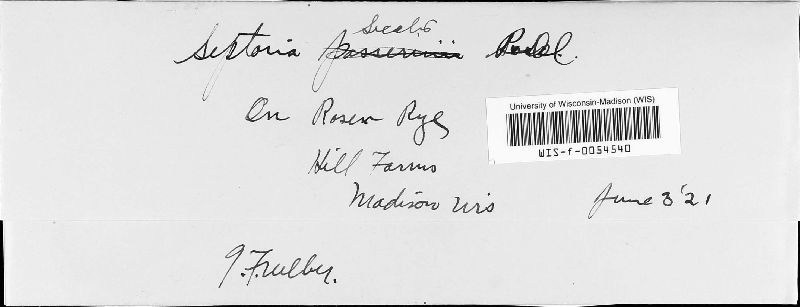 Secalis
Septoria passerinii
On Rosen Rye
Hill Farms
Madison Wis
June 3 '21
University of Wisconsin-Madison (WIS)
WIS-f-0054540